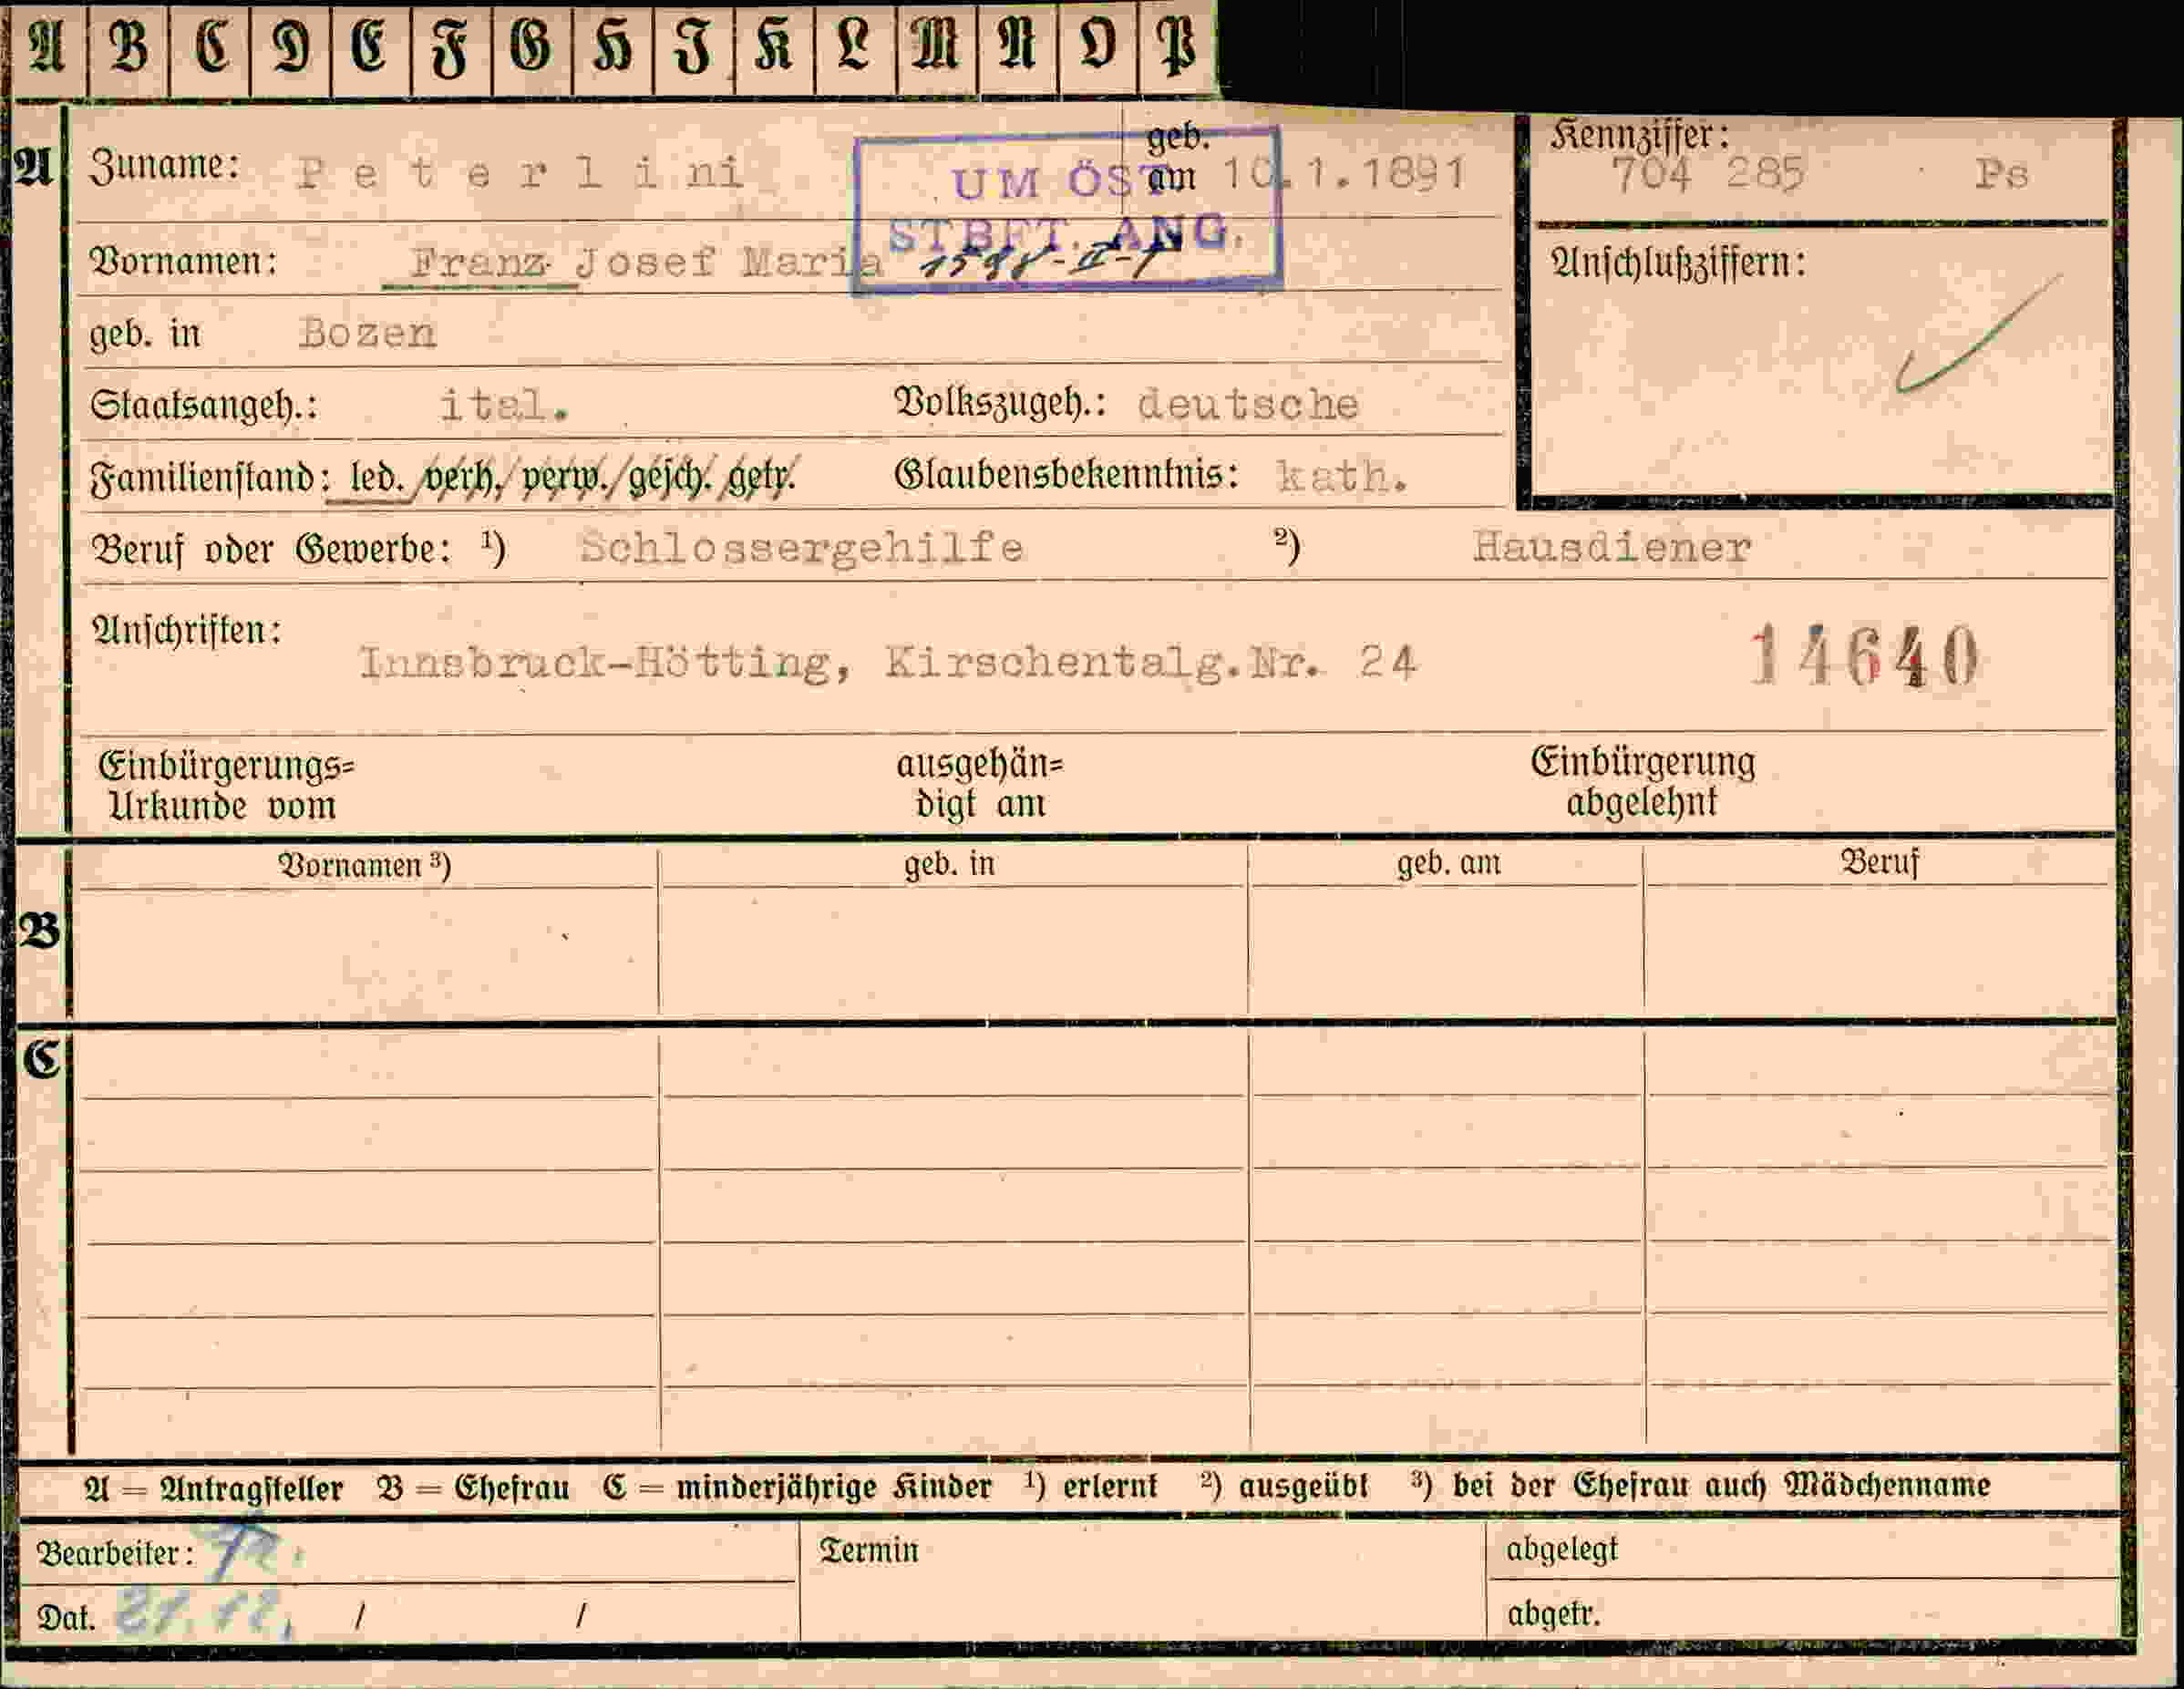 A B C D E F G H J K L M N O P
A Zuname: Peterlini geb. am 10.1.1891 Kennziffer: 704 285 Ps
UM ÖST.
STBFT. ANG.
Vornamen: Franz Josef Maria Anschlußziffern:
geb. in Bozen
Staatsangeh.: ital. Volkszugeh.: deutsche
Familienstand: led. verh./verw./gesch. getr. Glaubensbekenntnis: kath.
Beruf oder Gewerbe: ¹) Schlossergehilfe ²) Hausdiener
Anschriften:
Innsbruck-Hötting, Kirschentalg.Nr. 24 14640
Einbürgerungs= ausgehän= Einbürgerung
Urkunde vom digt am abgelehnt
Vornamen ³) geb. in geb. am Beruf
B
C
A = Antragsteller B = Ehefrau C = minderjährige Kinder ¹) erlernt ²) ausgeübt ³) bei der Ehefrau auch Mädchenname
Bearbeiter: Termin abgelegt
Dat. 21.12. / / abgetr.